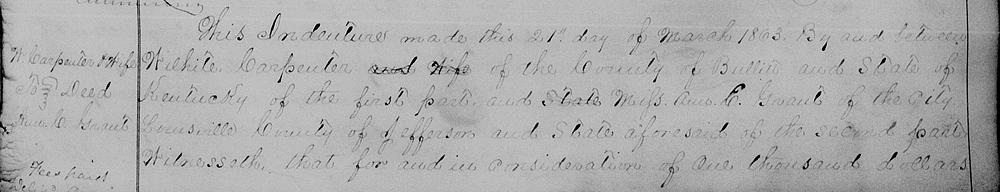 This Indenture made this 21st day of March 1863. By and between
W. Carpenter & Wife
Wilhite Carpenter and Wife of the County of Bullitt and State of
To } Deed
Kentucky of the first part, and State Miss. Ann. C. Grant of the City
Ann. C. Grant
Louisville County of Jefferson and State aforesaid of the second part
Witnesseth, that for and in consideration of One thousand dollars
Fees paid